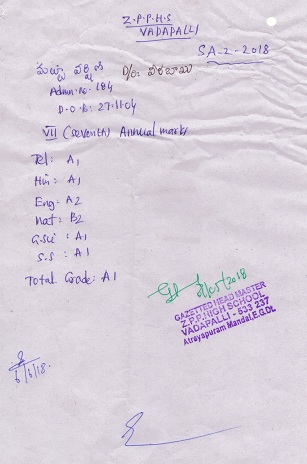 Z.P.P.H.S
VADAPALLI
SA-2-2018
D/o: వీరబాబు
Admn.No: 184
D.O.B: 27-11-04
VII (seventh) Annual marks
Tel: A1
Hin: A1
Eng: A2
Mat: B2
G.Sci: A1
S.S: A1
Total Grade: A1
/05/2018
GAZETTED HEAD MASTER
Z.P.P.HIGH SCHOOL
VADAPALLI - 533 237
Atreyapuram Mandal, E.G.Dt.